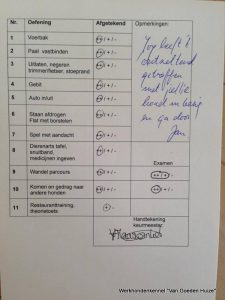 Nr. Oefening Afgetekend Opmerkingen:
1 Voertrak /+/-
2 Paal vastbinden /+/-
3 Uitlaten, negeren /+/-
trimmer/fietser, stoeprand
4 Gebit /+/-
5 Auto in/uit /+/-
6 Staan afdrogen /+/-
Flat met borstelen
7 Spel met aandacht /+/-
8 Dierenarts tafel, /+/-
snuitband,
medicijnen ingeven
Examen
9 Wandel parcours /+/- /+/-
10 Komen en gedrag naar /+/- /+/-
andere honden
11 Restauranttraining, + -
theorietoets
Handtekening
keurmeester:
heeft
getroffen
met jullie
hond
en ga door
Werkhondenkennel "Van Goeden Huize"